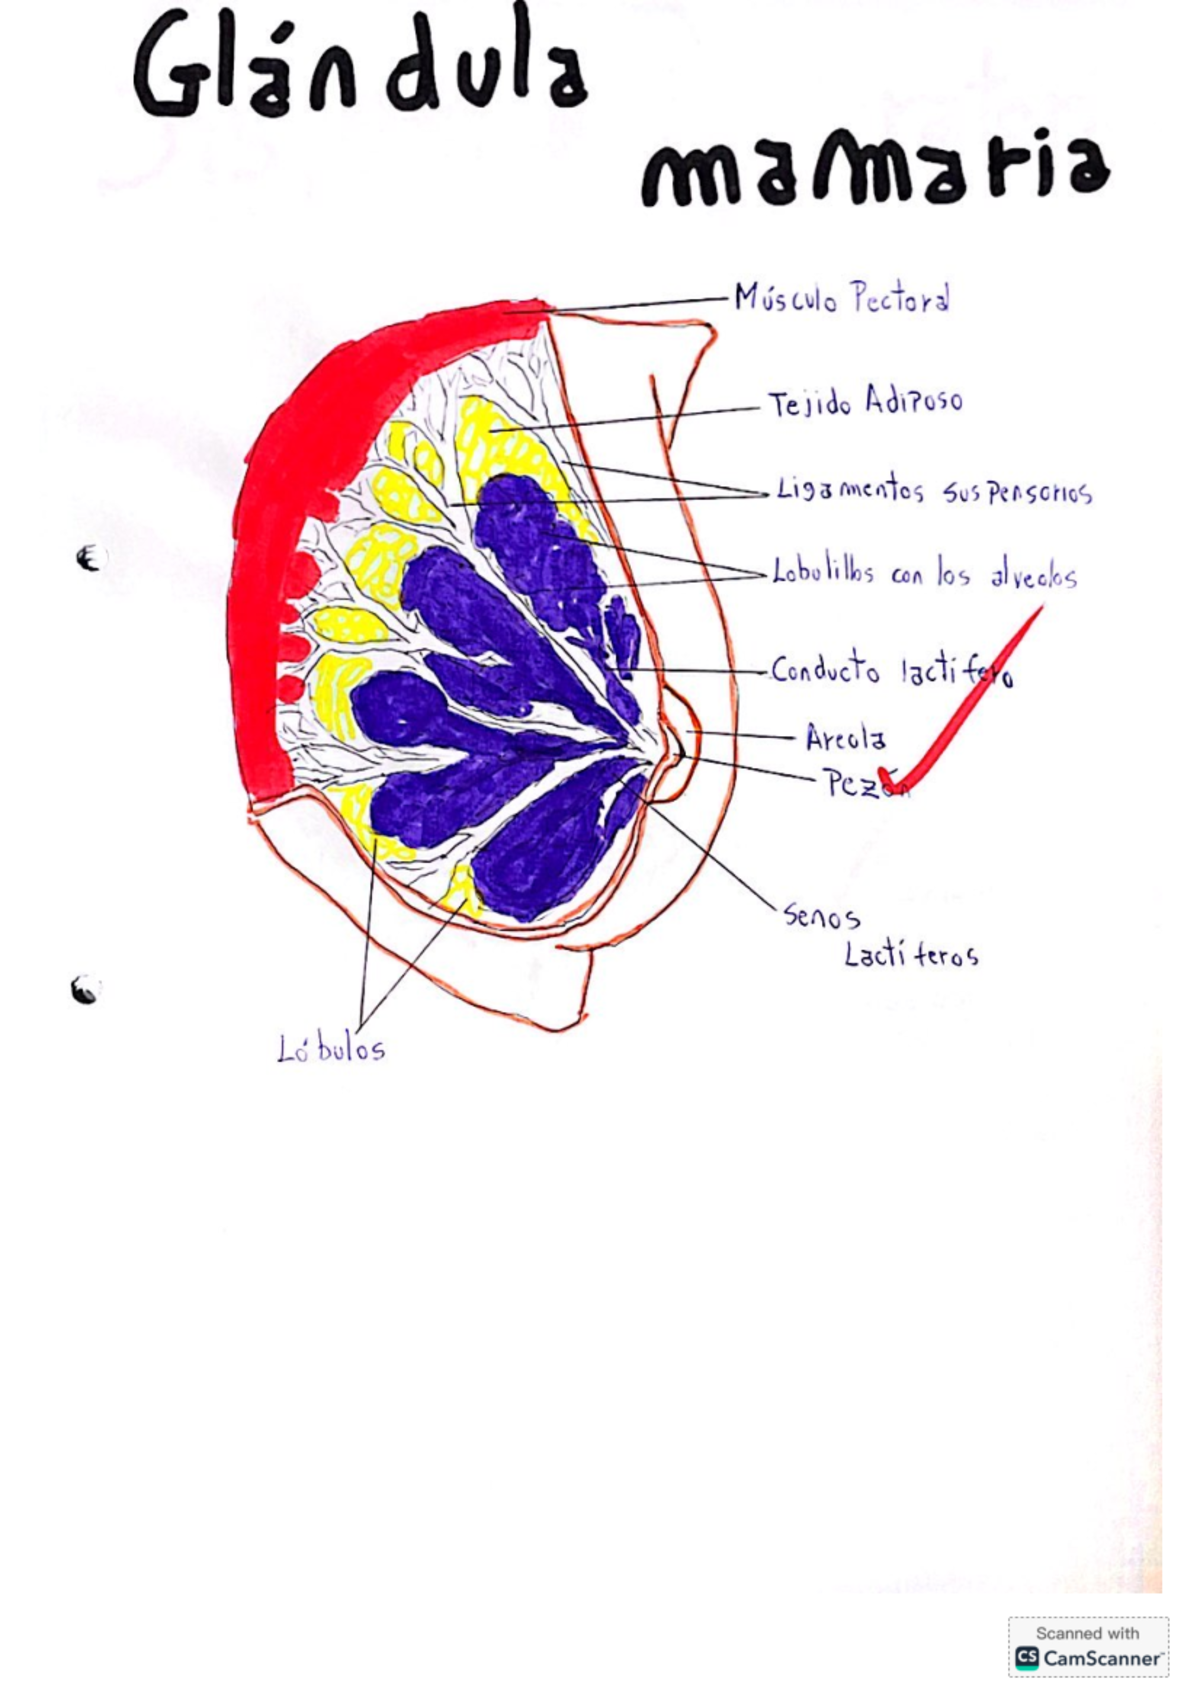 Glándula
mamaria
Músculo Pectoral
Tejido Adiposo
Ligamentos suspensorios
Lobulillos con los alveolos
Conducto lactífero
Areola
Pezón
Senos
Lactíferos
Lóbulos
Scanned with
CS CamScanner